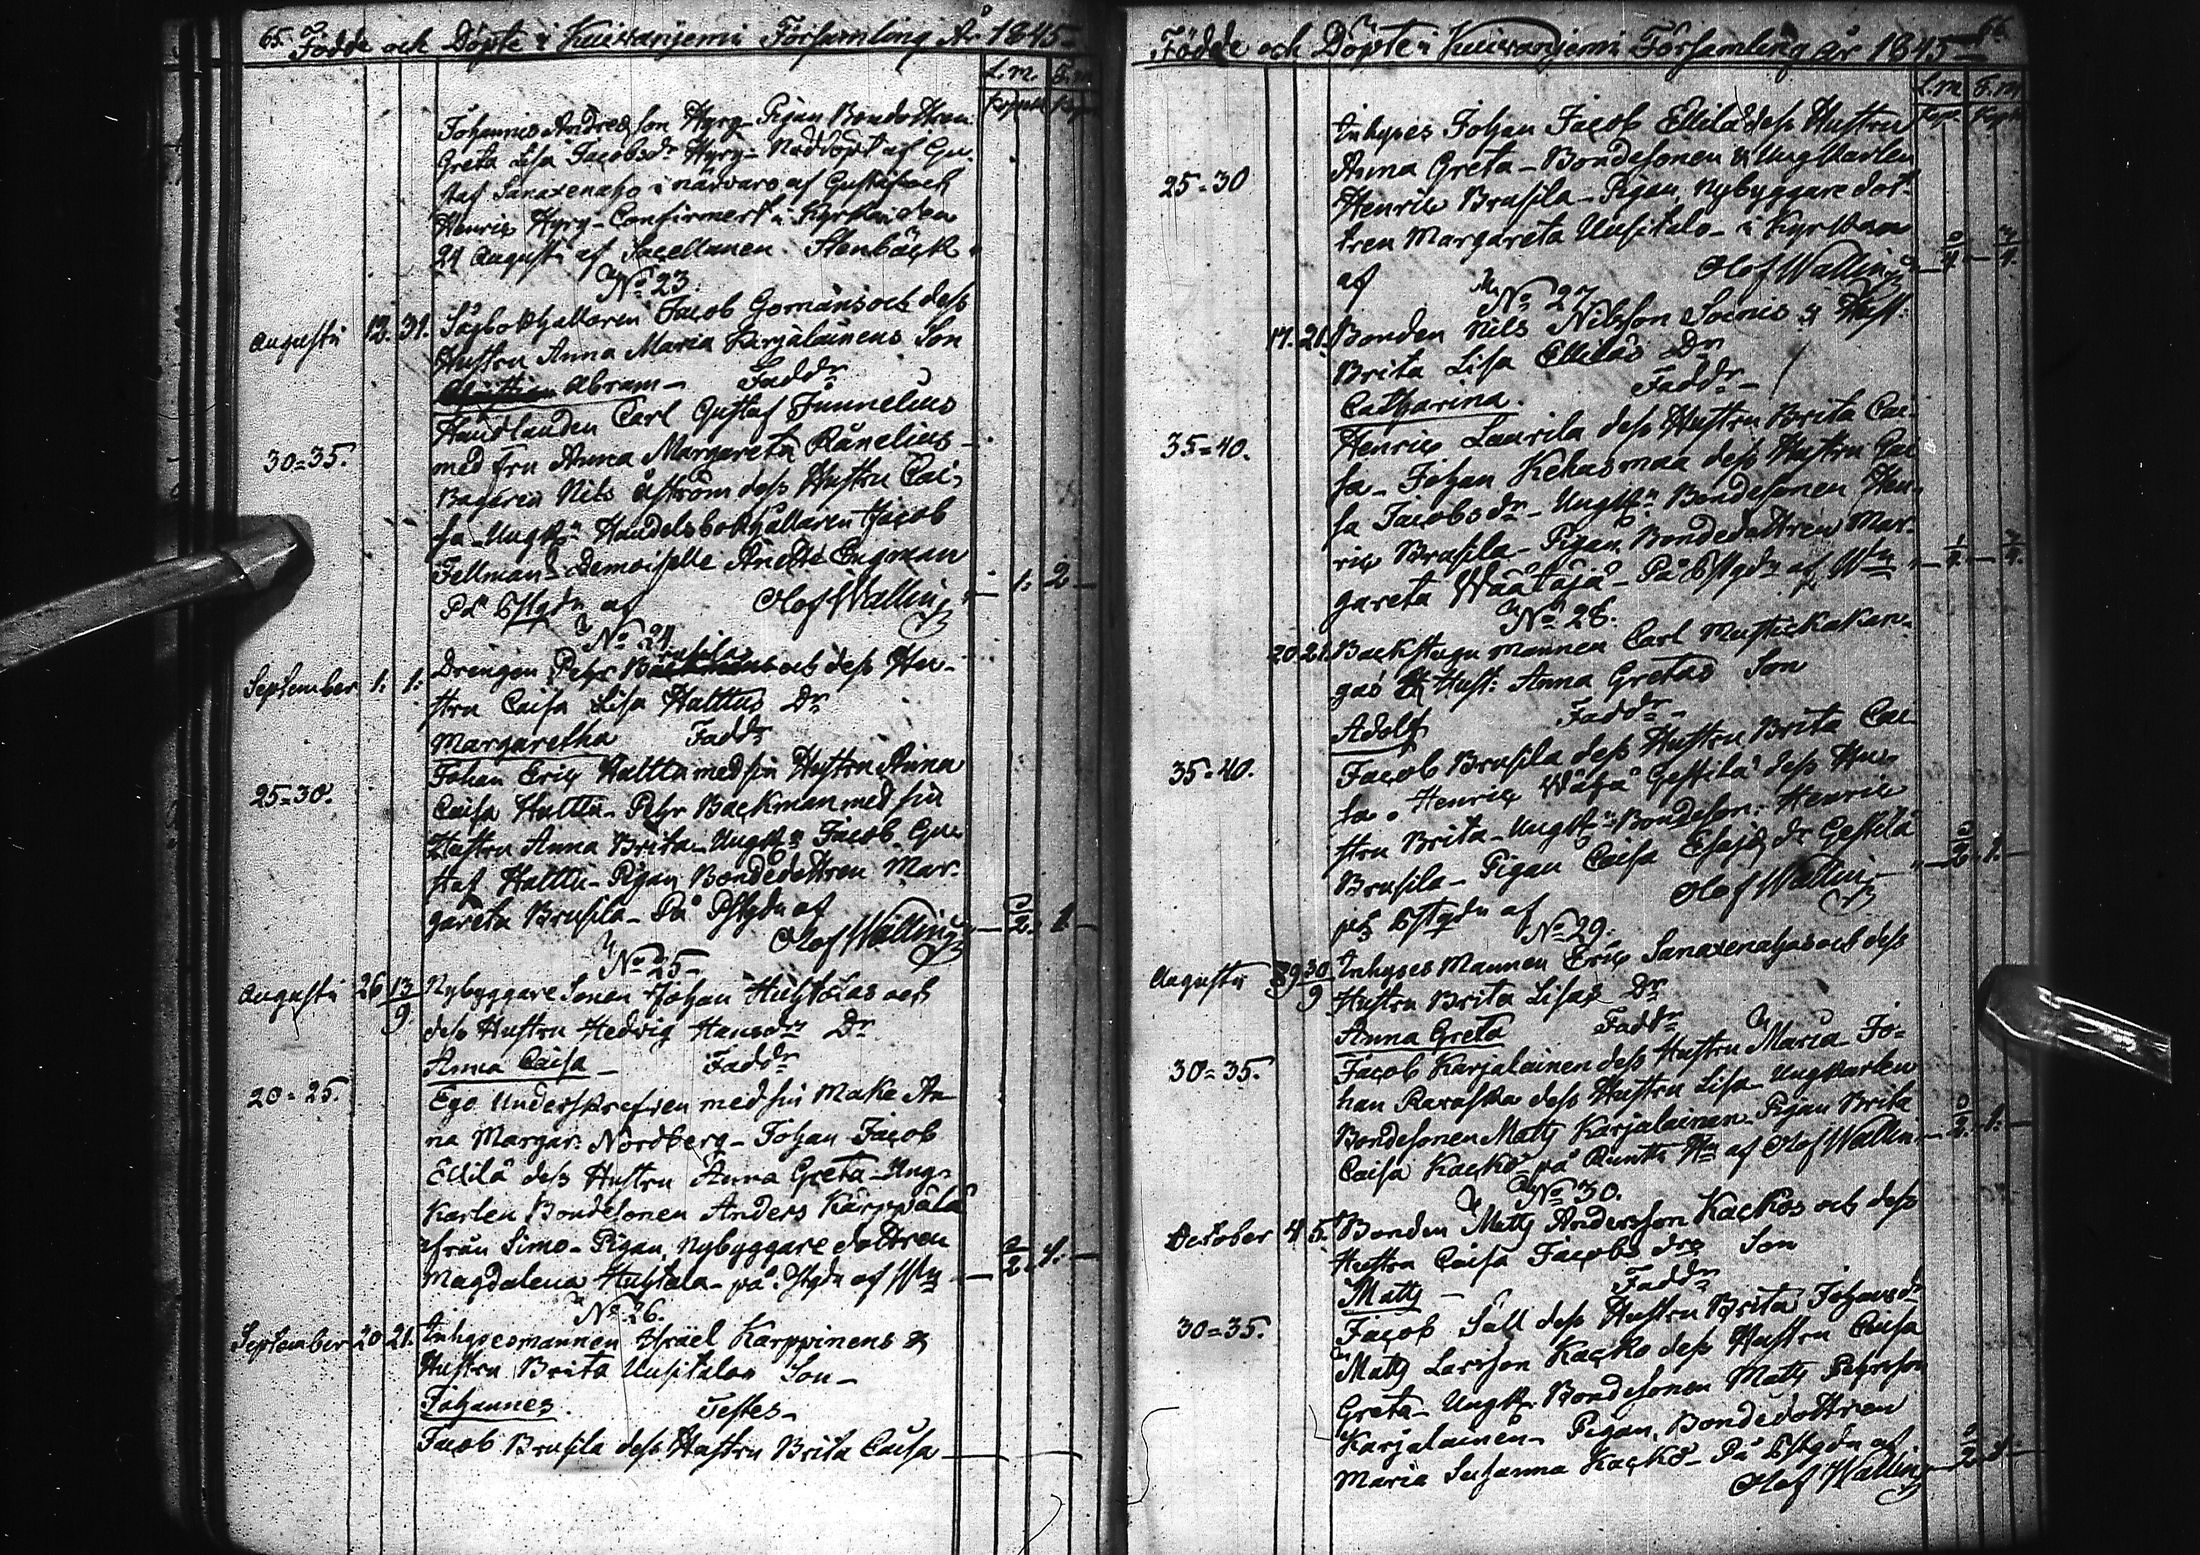 65. Födde och Döpte i Kuivaniemi Församling År 1845
Johannis Andersson Hyry - Pigan Bondedottren
Greta Lisa Jacobsdr Hyry - Nöddöpt af Gu-
staf Sanaxenaho i närvaro af Gustaf och
Henric Hyry - Confirmert i Kyrkan den
24 Augusti af Sacellanen Stenbäck.
No 23.
Augusti 13. 31. Sågbokhållaren Jacob Gomans och dess
Hustru Anna Maria Karjalainens Son
Abram - Faddr
30=35. Handlanden Carl Gustaf Junnelius
med fru Anna Margareta Rånelius -
Bagaren Nils Åström dess Hustru Cai-
sa - Ungk: Handelsbokhållaren Jacob
Fellman - Demoiselle Anette Engman
På Pstgdn af Olof Wallin 1. 2
No 24
September 1. 1. Drengen Pehr Brusila och dess Hu-
stru Caisa Lisa Halttus Dr
Margaretha Faddr
25=30. Johan Eric Halttu med sin Hustru Anna
Caisa Halttu - Pehr Backman med sin
Hustru Anna Brita - Ungk: Jacob Gu-
staf Halttu - Pigan Bondedottren Mar-
gareta Brusila - På Pstgdn af
Olof Wallin 1
No 25
Augusti 26 13/9 Nybyggare Sonen Johan Huhtalas och
dess Hustru Hedvig Hansdrs Dr
Anna Caisa - Faddr
20=25. Ego Underskrefven med sin Make An-
na Margar: Nordberg - Johan Jacob
Ellilä dess Hustru Anna Greta - Ung-
Karlen Bondesonen Anders Kärppälä
från Simo - Pigan Nybyggare dottren
Magdalena Huhtala - på Pstgdn af Wn 1.
No 26.
September 20 21. Inhysesmannen Israel Karppinens &
Hustru Brita Uusitalos Son -
Johannes. Testes -
Jacob Brusila dess Hustru Brita Caisa
Födde och Döpte i Kuivaniemi Församling år 1845 66
Inhyses Johan Jacob Ellilä dess Hustru
25=30 Anna Greta - Bondesonen & Ungkarlen
Henric Brusila - Pigan, Nybyggare dot-
tren Margareta Uusitalo - i Kyrkan
af Olof Wallin
No 27
17. 21. Bonden Nils Nilsson Soinis & Hust:
Brita Lisa Ellilas Dr
Catharina. Faddr -
35=40. Henric Laurila dess Hustru Brita Cai-
sa - Johan Kehusmaa dess Hustru Cai-
sa Jacobsdr - Ungk: Bondesonen Hen-
ric Brusila - Pigan Bondedottren Mar-
gareta Wäätäjä - På Pstgdn af Wn
No 28.
20 21. Backstugu mannen Carl Mustickakan-
gas & Hust: Anna Gretas Son
Adolf Faddr -
35=40. Jacob Brusila dess Hustru Brita Cai-
sa - Henric Gestilä dess Hu-
stru Brita - Ungk: Bondeson: Henric
Brusila - Pigan Caisa Esajædr Gestilä 1.
på Pstgdn af Olof Wallin
No 29.
Augusti 29 30/9 Inhyses Mannen Eric Sanaxenahos och dess
Hustru Brita Lisas Dr
Anna Greta Faddr
30=35. Jacob Karjalainen dess Hustru Maria - Jo-
han Ravaska dess Hustru Lisa - Ungkarlen
Bondesonen Matts Karjalainen - Pigan Brita 1.
Caisa Kackö på Runttu Hn af Olof Wallin
No 30.
October 4 5. Bonden Matts Andersson Kackos och dess
Hustru Caisa Jacobsdrs Son
Matts - Faddr
30=35. Jacob Säll dess Hustru Brita Johansdr
Matts Larsson Kacko dess Hustru Caisa
Greta - Ungk: Bondesonen Matts Pehrsson
Karjalainen - Pigan, Bondedottren
Maria Susanna Kackö - På Pstgdn af
Olof Wallin